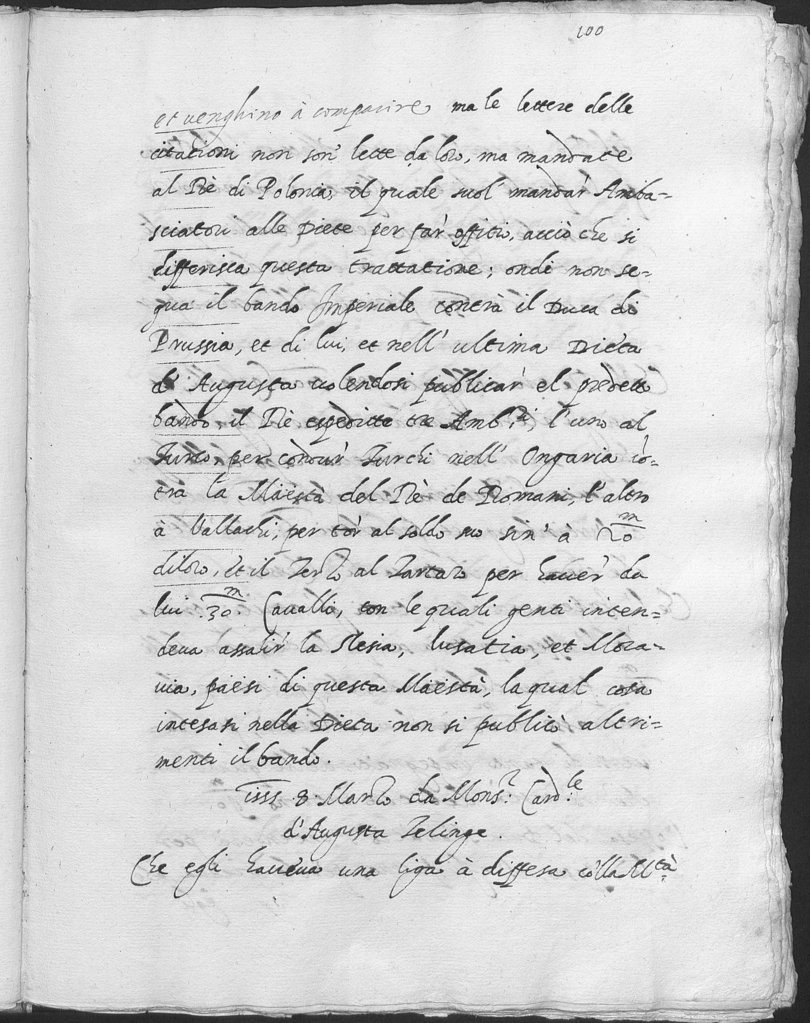 100
et venghino à comparire, ma le lettere delle
citationi non son' lette da loro, ma mandate
al Rè di Polonia, il quale suol' mandar' Amba-
sciatori alle Diete per far' offitio, acciò che si
differisca questa trattatione; onde non se-
gua il bando Imperiale contra il Duca di
Prussia, et di lui, et nell' ultima Dieta
d' Augusta volendosi publicar' el predetto
bando, il Rè espeditte tre Amb.ri, l'uno al
Turco, per condur' Turchi nell' Ongaria cò-
tra la Maestà del Rè de Romani, l'altro
à Vallachi, per tor' al soldo suo sin' à 20 m
di loro, et il Terzo al Tartaro per haver' da
lui 30 m Cavalli, con le quali genti inten-
deva assalir' la Slesia, Lusatia, et Mora-
via, paesi di questa Maestà, la qual cosa
intesasi nella Dieta non si publicò altri-
menti il bando.
1555 8 Marzo da Mons.r Card.le
d'Augusta Telinge.
Che egli haveva una liga à diffesa còlla M.tà